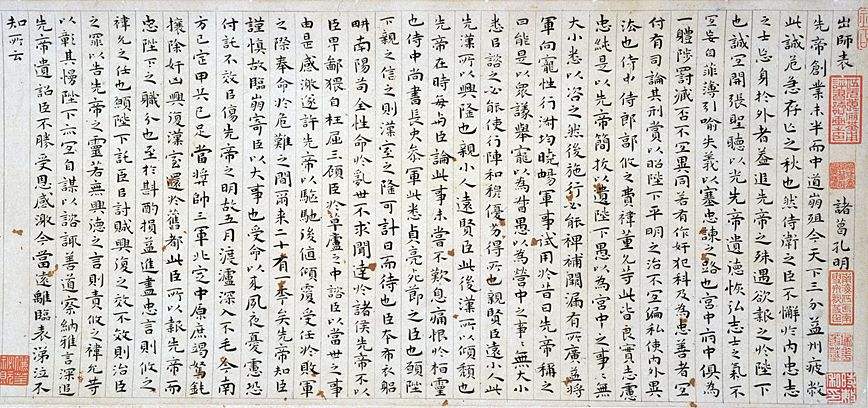 出師表 諸葛孔明
先帝創業未半而中道崩殂今天下三分益州疲敝
此誠危急存亡之秋也然侍衛之臣不懈於內忠志
之士忘身於外者蓋追先帝之殊遇欲報之於陛下
也誠宜開張聖聽以光先帝遺德恢弘志士之氣不
宜妄自菲薄引喻失義以塞忠諫之路也宮中府中俱為
一體陟罰臧否不宜異同若有作奸犯科及為忠善者宜
付有司論其刑賞以昭陛下平明之治不宜偏私使內外異
法也侍中侍郎郭攸之費禕董允等此皆良實志慮
忠純是以先帝簡拔以遺陛下愚以為宮中之事事無
大小悉以咨之然後施行必能裨補闕漏有所廣益將
軍向寵性行淑均曉暢軍事試用於昔日先帝稱之
曰能是以眾議舉寵以為督愚以為營中之事事無大小
悉以諮之必能使行陣和穆優劣得所也親賢臣遠小人此
先漢所以興隆也親小人遠賢臣此後漢所以傾頹也
先帝在時每與臣論此事未嘗不歎息痛恨於桓靈
也侍中尚書長史參軍此悉貞亮死節之臣也陛
下親之信之則漢室之隆可計日而待也臣本布衣躬
耕南陽苟全性命於亂世不求聞達於諸侯先帝不以
臣卑鄙猥自枉屈三顧臣於草廬之中諮臣以當世之事
由是感激遂許先帝以驅馳後值傾覆受任於敗軍
之際奉命於危難之間爾來二十有一年矣先帝知臣
謹慎故臨崩寄臣以大事也受命以來夙夜憂慮恐
付託不效以傷先帝之明故五月渡瀘深入不毛今南
方已定甲兵已足當獎帥三軍北定中原庶竭駑鈍
攘除奸凶興復漢室還於舊都此臣所以報先帝而
忠陛下之職分也至於斟酌損益進盡忠言則攸之
禕允之任也願陛下託臣以討賊興復之效不效則治臣
之罪以告先帝之靈若無興德之言則責攸之禕允等
以彰其慢陛下亦宜自謀以諮諏善道察納雅言深追
先帝遺詔臣不勝受恩感激今當遠離臨表涕泣不
知所云